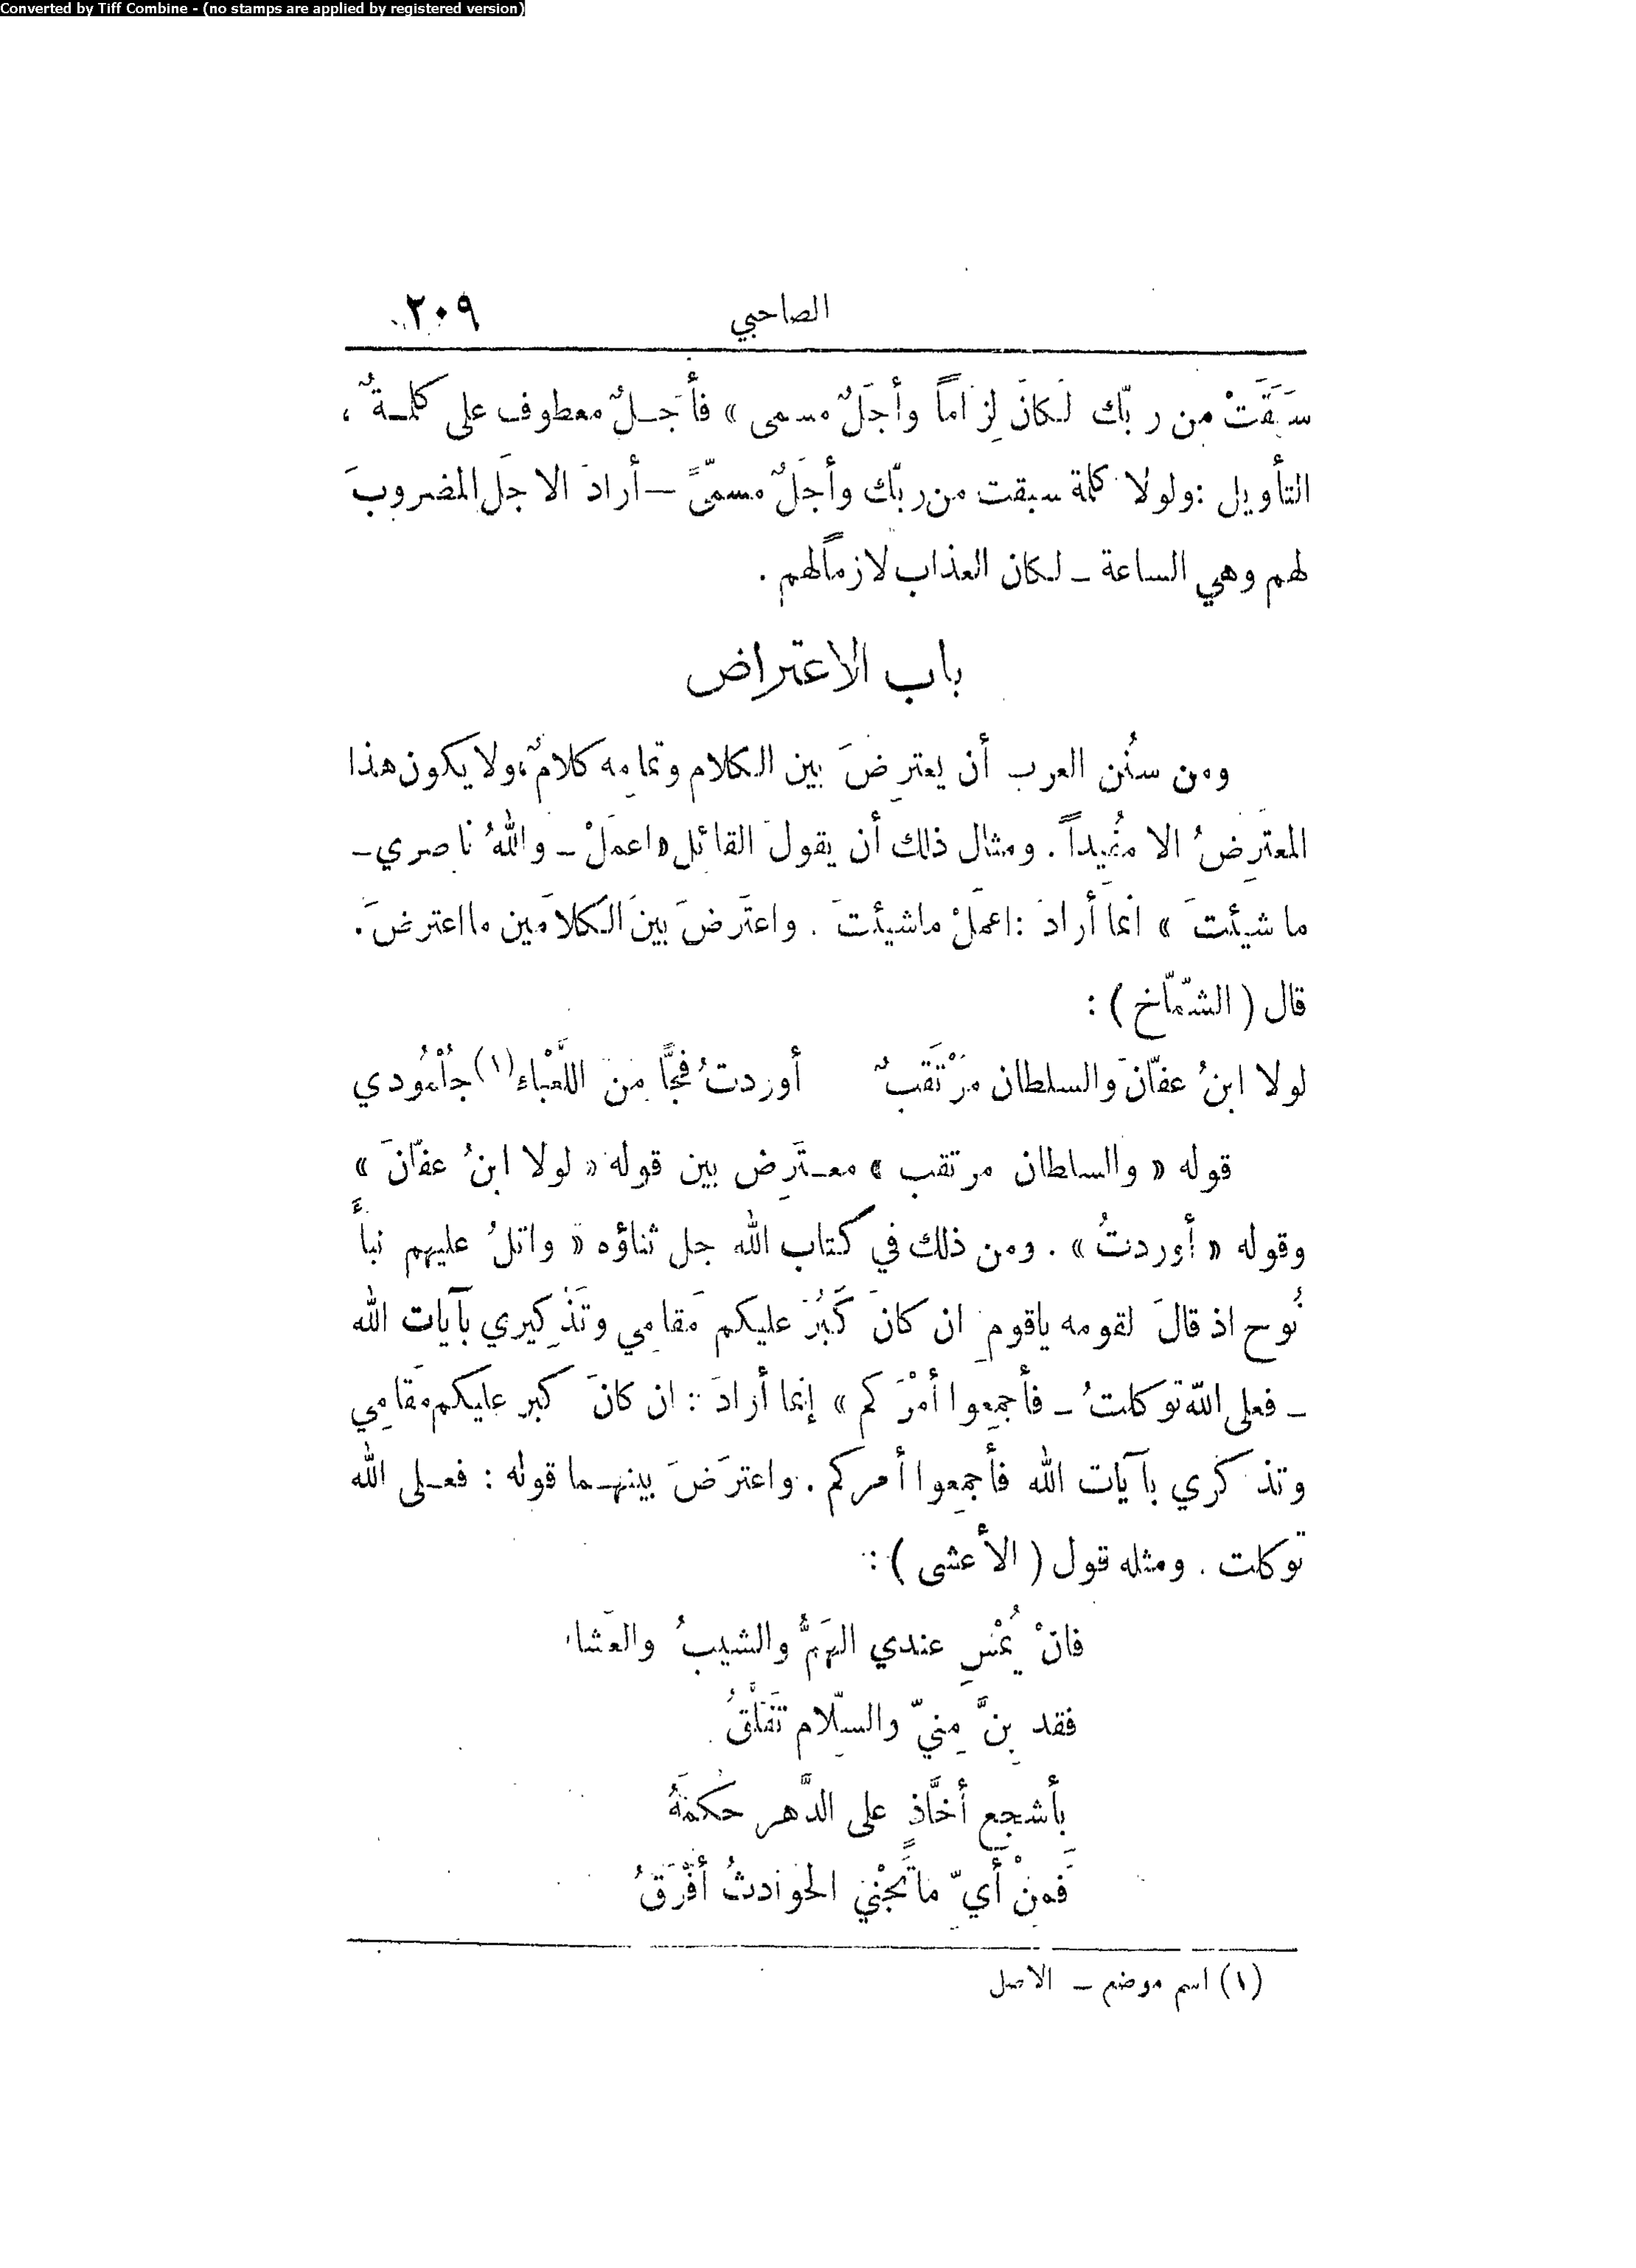 Converted by Tiff Combine - (no stamps are applied by registered version)
الصاحبي ٢٠٩
سَبَقَتْ من ربّك لَكانَ لِزاماً وأجَلٌ مسمى » فأَجـلٌ معطوف على كلمـةٌ ،
التأويل : ولولا كلمة سبقت من ربّك وأجَلٌ مسمّىً — أرادَ الاجَل المضروبَ
لهم وهي الساعة ـ لكان العذاب لازماً لهم .
باب الاعتراض
ومن سنُن العرب أن يعترِضَ بين الكلام وتمامِه كلامٌ، ولا يكون هذا
المعترِضُ الا مفُيداً . ومثال ذلك أن يقولَ القائل « اعمَلْ ـ واللهُ ناصري ـ
ما شيئتَ » انمَا أرادَ : اعمَلْ ماشيئتَ . واعتَرضَ بينَ الكلامَين ما اعترضَ .
قال ( الشمّاخ ) :
لولا ابنُ عفّانَ والسلطان مرْتَقَبٌ أوردتُ فجًّا مِنَ اللَّعْباء (١) جُلْمُودي
قوله « والسلطان مرتقب » معـترِض بين قوله « لولا ابنُ عفّانَ »
وقوله « أوردتُ » . ومن ذلك في كتاب الله جل ثناؤه « واتلُ عليهم نبأَ
نُوح اذ قالَ لقومه ياقومِ ان كانَ كَبُرَ عليكم مَقامِي وتَذْكِيري بآيات الله
ـ فعلى اللّه توكلتُ ـ فأجمِعوا أمْرَكم » إنما أرادَ : ان كانَ كبر عليكم مَقَامِي
وتذكرِي بآيات الله فأجمِعوا أمركم . واعترَضَ بينهـما قوله : فعـلى الله
توكلت . ومثله قول ( الأعشى ) :
فانْ يُمْسِ عندي الهَمُّ والشيبُ والعَشا
فقد بِنَّ مِنيّ والسِّلام تَفَلَّقُ
بأشجع أخَّاذٍ على الدَّهر حكمَهُ
فَمنْ أيِّ ماتَجْني الحَوادثُ أفْرَقُ
(١) اسم موضع ـ الاصل